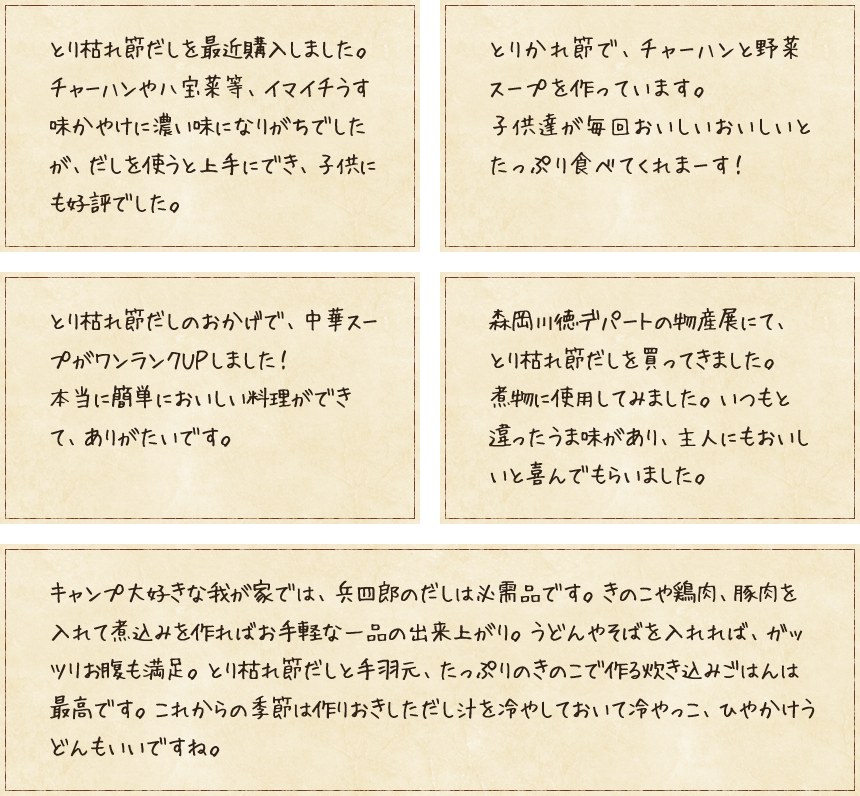 とり枯れ節だしを最近購入しました。
チャーハンや八宝菜等、イマイチうす
味かやけに濃い味になりがちでした
が、だしを使うと上手にでき、子供に
も好評でした。
とりかれ節で、チャーハンと野菜
スープを作っています。
子供達が毎回おいしいおいしいと
たっぷり食べてくれまーす！
とり枯れ節だしのおかげで、中華スー
プがワンランクUPしました！
本当に簡単においしい料理ができ
て、ありがたいです。
森岡川徳デパートの物産展にて、
とり枯れ節だしを買ってきました。
煮物に使用してみました。いつもと
違ったうま味があり、主人にもおいし
いと喜んでもらいました。
キャンプ大好きな我が家では、兵四郎のだしは必需品です。きのこや鶏肉、豚肉を
入れて煮込みを作ればお手軽な一品の出来上がり。うどんやそばを入れれば、ガッ
ツリお腹も満足。とり枯れ節だしと手羽元、たっぷりのきのこで作る炊き込みごはんは
最高です。これからの季節は作りおきしただし汁を冷やしておいて冷やっこ、ひやかけう
どんもいいですね。